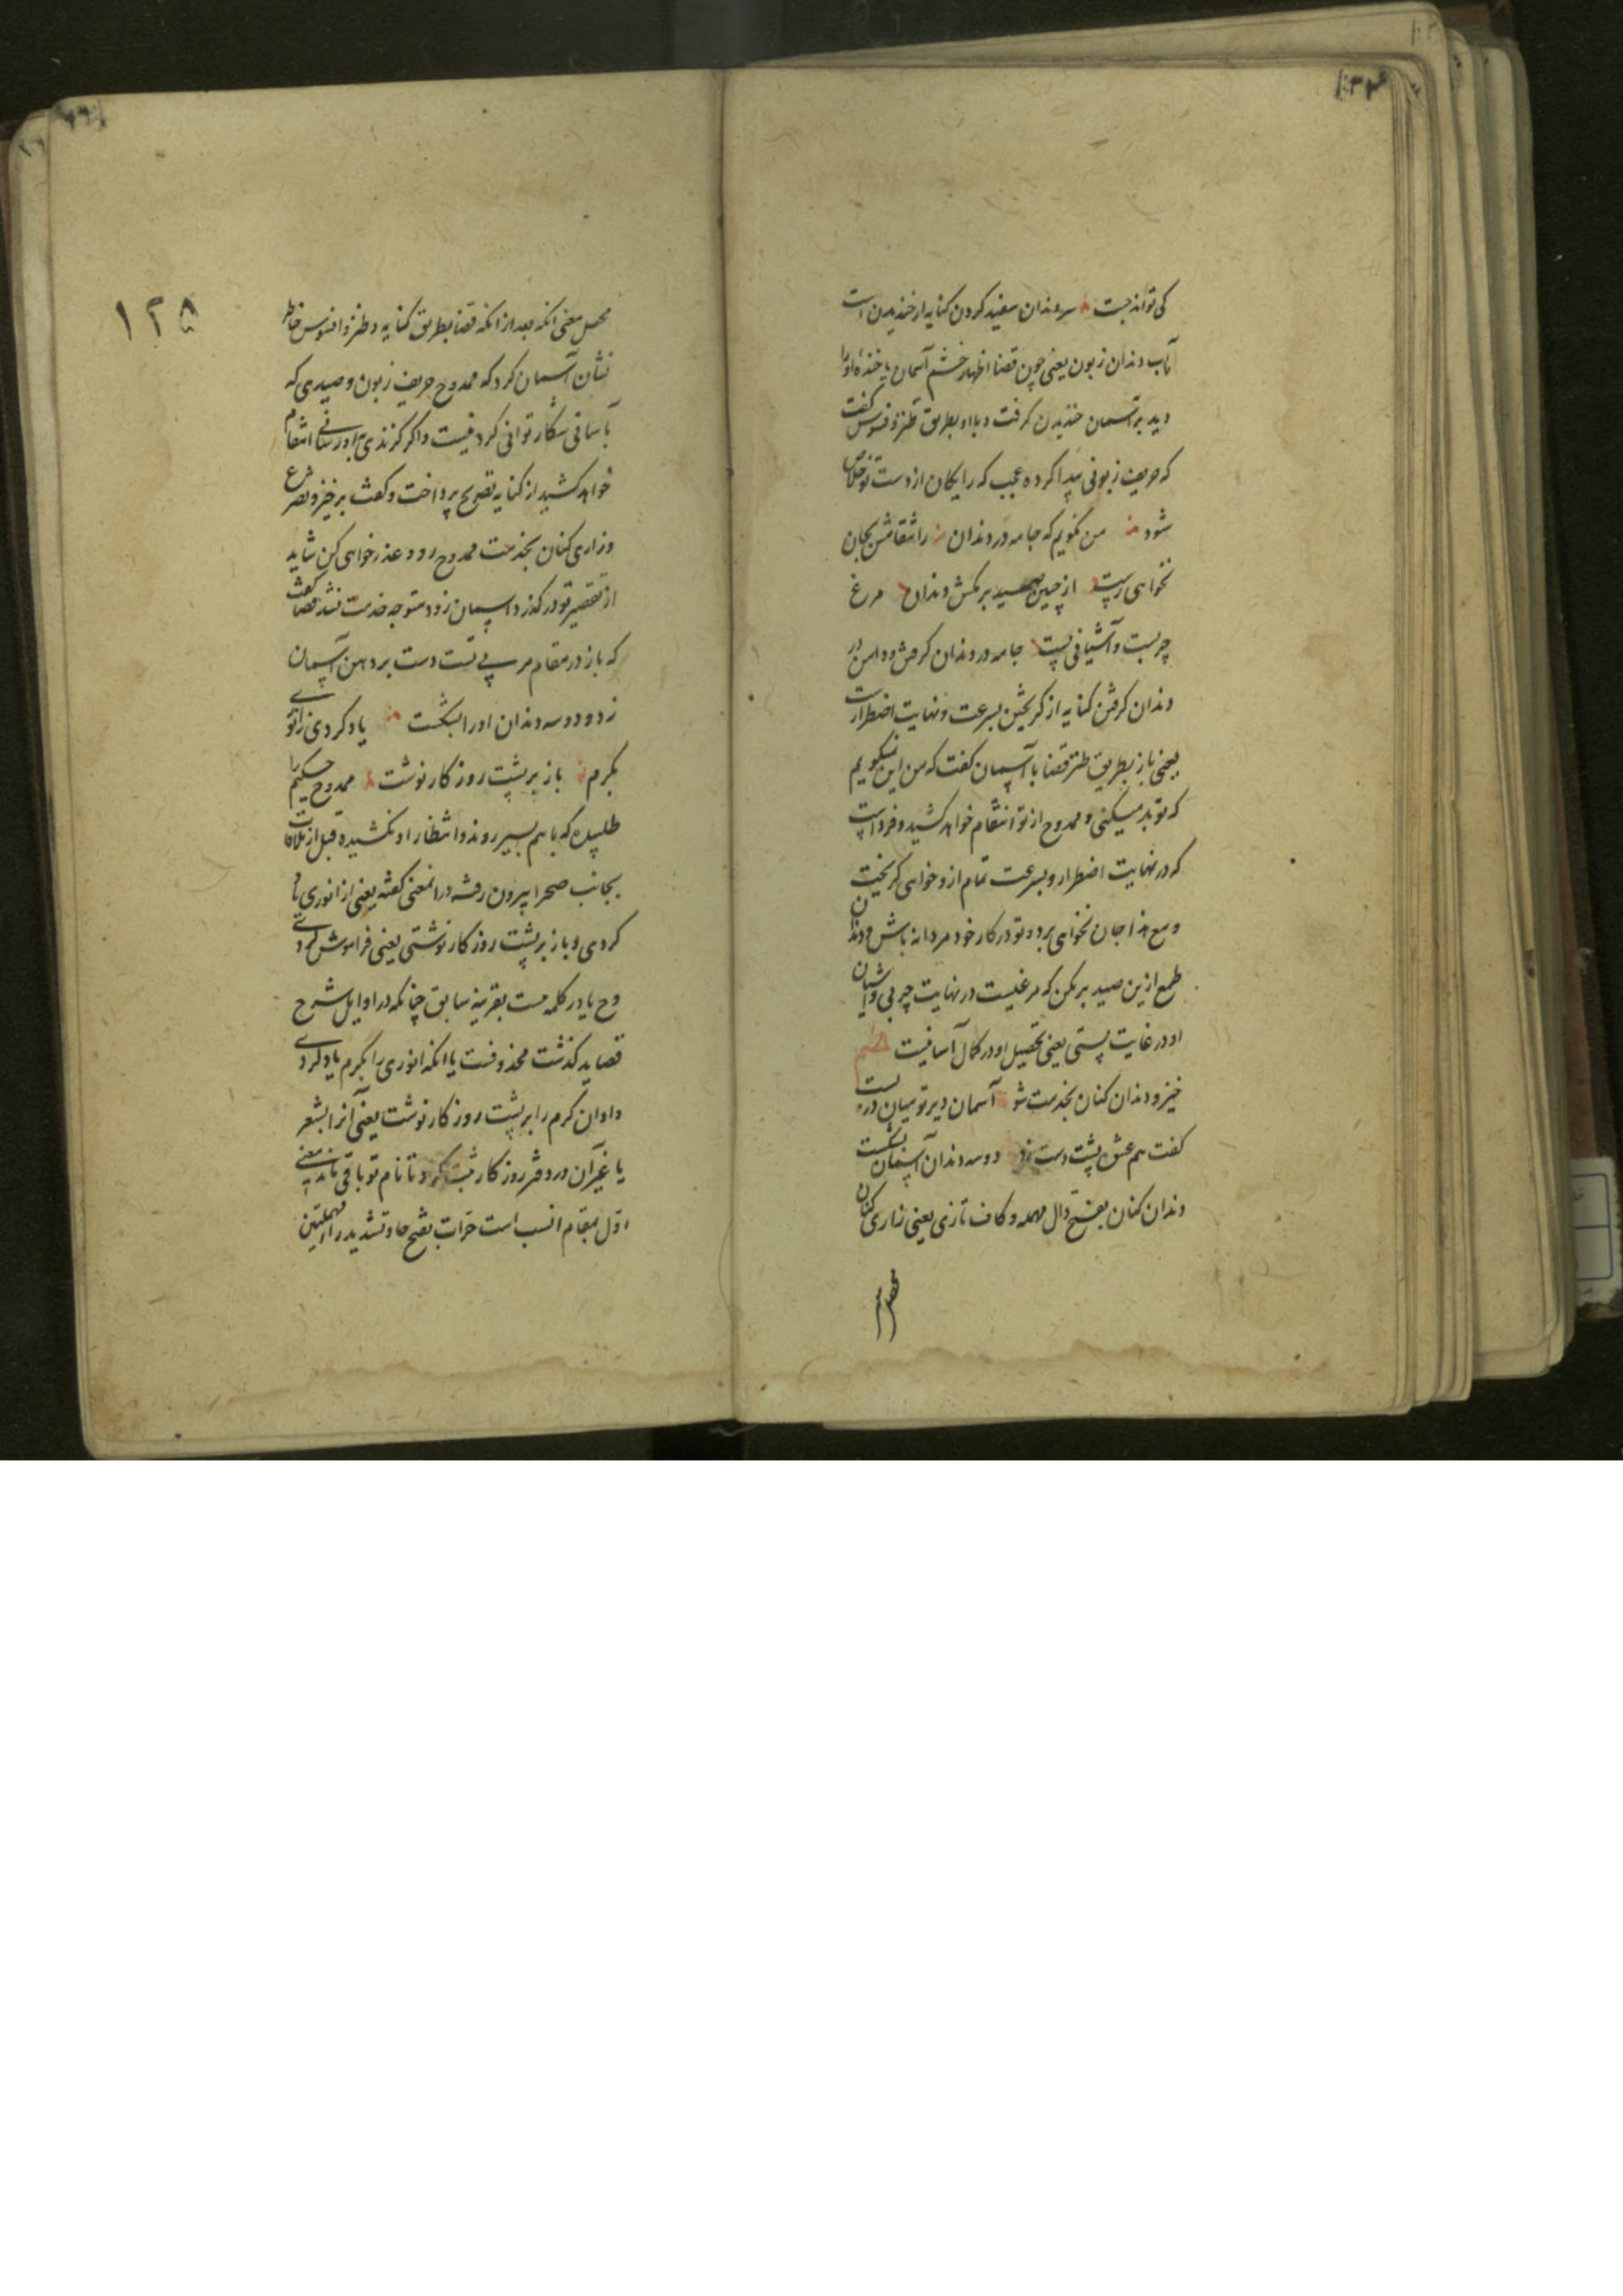 کی تواند جست سر دندان سفید کردن کنایه از خندیدن است
آب دندان زبون یعنی چون قضا اظهار خشم آسمان یا خنده او را
دید بر آسمان خندیدن کرفت و با او بطریق طنز و فسوس کفت
که حریف زبونی پیدا کرده عجب که رایکان از دست تو خلاص
شود من نکویم که جامه در دندان ز انتقامش بجان
نخواهی رست از چنین صید برکش دندان مرغ
چربست و آشیانی پست جامه در دندان کرفتن و دامن در
دندان کرفتن کنایه از کریختن بسرعت و نهایت اضطرارست
یعنی باز بطریق طنز قضا با آسمان کفت که من این نمیکویم
که تو بد میکنی و ممدوح از تو انتقام خواهد کشید و فرداست
که در نهایت اضطرار و بسرعت تمام از و خواهی کریخت
و مع هذا جان نخواهی برد و تو در کار خود مردانه باش و دندان
طمع ازین صید برمکن که مرغیست در نهایت چربی و آشیان
او در غایت پستی یعنی تحصیل او در کمال آسانیست
خیز و دندان کنان بخدمت شو آسمان دیرتر میان در بست
کفت هم عشق پشت دست بزد دو سه دندان آسمان بشکست
دندان کنان بفتح دال مهمله و کاف تازی یعنی زاری کنان
محصل
۱۲۵
محصل معنی آنکه بعد از آنکه قضا بطریق کنایه و طنز و افسوس خاطر
نشان آسمان کرد که ممدوح حریف زبون و صیدی که
بآسانی شکار توانی کرد نیست و اکر کزندی باو رسانی انتقام
خواهد کشید از کنایه بتصریح پرداخت و کفت برخیز و تضرع
و زاری کنان بخدمت ممدوح رو و عذرخواهی کن شاید
از تقصیر تو درکذرد آسمان زود متوجه خدمت نشد قضا کفت
که باز در مقام بی تست دست بر دهن آسمان
زد و دو سه دندان او را بشکست یاد کردی ز انوری
بکرم باز بر پشت روزکار نوشت ممدوح حکیم را
طلبیده که باهم بسیر روند و انتظار او نکشیده قبل از ملاقات
بجانب صحرا بیرون رفته در انمعنی کفته یعنی از انوری یاد
کردی و باز بر پشت روزکار نوشتی یعنی فراموش کردی
و ح یا در کلمه مست بقرینه سابق چنانکه در اوایل شرح
قصاید کذشت محذوفست یا انکه انوری را بکرم یاد کردی
و اوان کرم را بر پشت روزکار نوشت یعنی آنرا بشعر
یا غیر آن در دفتر روزکار ثبت کرد تا نام تو باقی ماند معنی
اول بمقام انسب است حرّات بفتح حا و تشدید را مهملتین